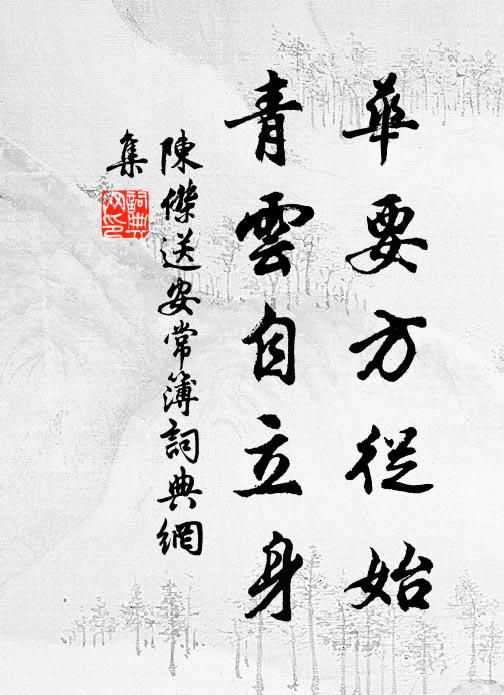 華要方從始
青雲自立身
陳傑送安常簿詞典網
集
詞典
网印